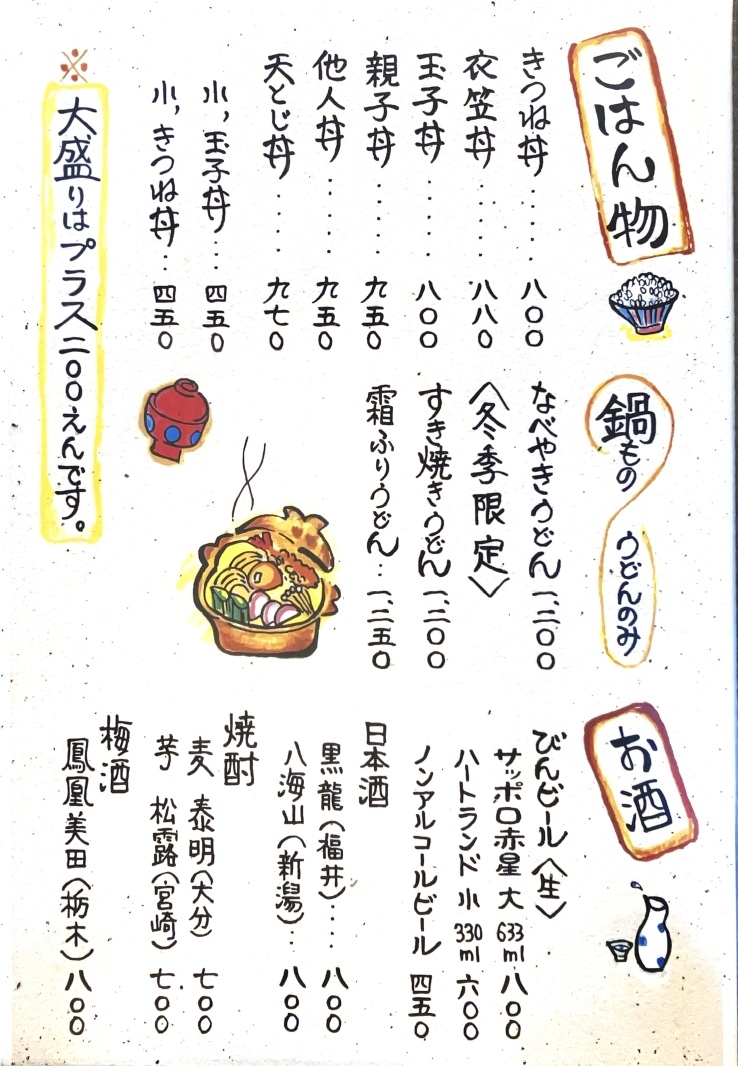 ごはん物
きつね丼‥‥‥八〇〇
衣笠丼‥‥‥八八〇
玉子丼‥‥‥八〇〇
親子丼‥‥‥九五〇
他人丼‥‥‥九五〇
天とじ丼‥‥‥九七〇
小,玉子丼…四五〇
小,きつね丼…四五〇
※大盛りはプラス二〇〇えんです。
鍋もの うどんのみ
なべやきうどん 一、二〇〇
〈冬季限定〉
すき焼きうどん 一、二〇〇
霜ふりうどん…一、二五〇
お酒
びんビール〈生〉
サッポロ赤星 大 633ml 八〇〇
ハートランド 小 330ml 六〇〇
ノンアルコールビール 四五〇
日本酒
黒龍(福井)‥‥八〇〇
八海山(新潟)…八〇〇
焼酎
麦 泰明(大分) 七〇〇
芋 松露(宮崎) 七〇〇
梅酒
鳳凰美田(栃木) 八〇〇